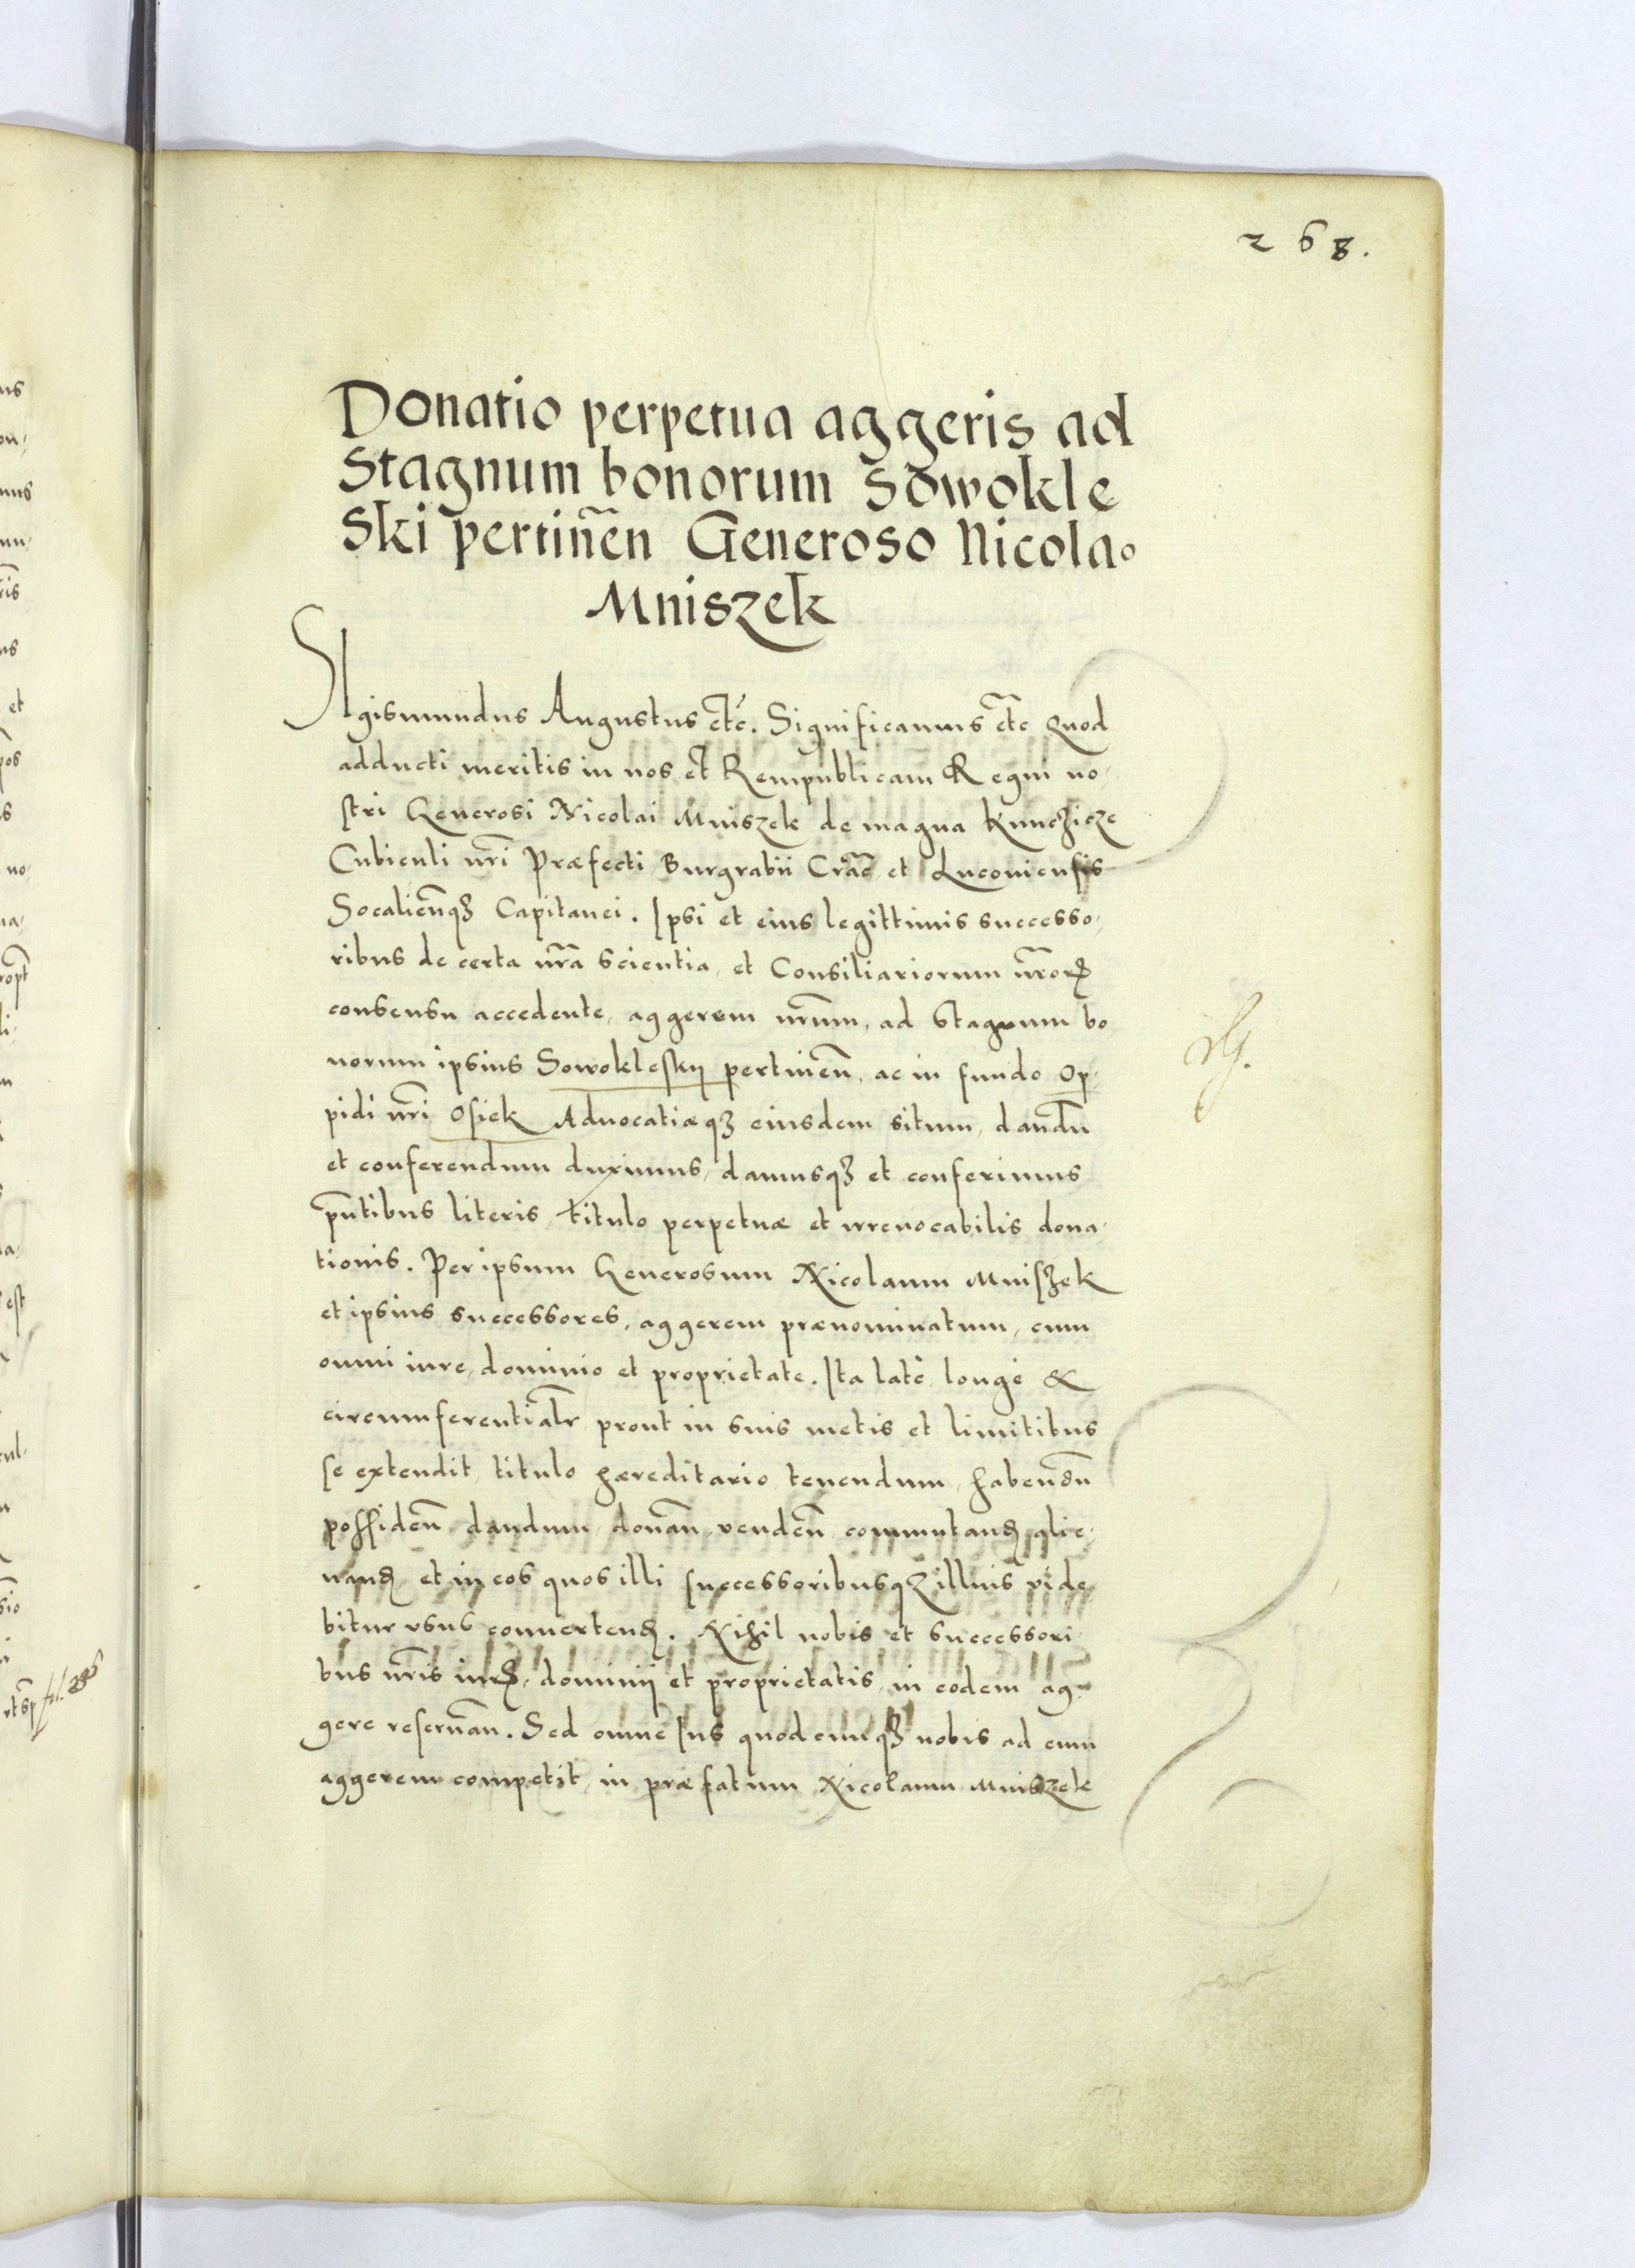 268.
Donatio perpetua aggeris ad
Stagnum bonorum Sowokle
Ski pertineñ Generoso Nicolao
Mniszek
SIgismundus Augustus etc̃. Significamus etc̃ Quod
adducti meritis in nos et Rempublicam Regni no-
stri Generosi Nicolai Mniszek de magna Kunczicze
Cubiculi nr̃i Præfecti Burgrabii Crac̃ et Luconiensis
Socalieñqꝫ Capitanei. Ipsi et eius legittimis successo-
ribus de certa nr̃a scientia, et Consiliariorum nr̃oꝝ
consensu accedente, aggerem nr̃um, ad Stagnum bo
norum ipsius Sowoklesky pertineñ, ac in fundo Op-
pidi nr̃i Osiek Aduocatiæqꝫ eiusdem situm, dandũ
et conferendum duximus, damusqꝫ et conferimus
pñtibus literis, titulo perpetuæ et irreuocabilis dona-
tionis. Per ipsum Generosum Nicolaum Mniszek
et ipsius successores, aggerem prænominatum, cum
omni iure, dominio et proprietate. Ita latè longè &
circumferentialr̃ prout in suis metis et limitibus
se extendit, titulo hæreditario tenendum, habendũ
possideñ, dandum, donañ, vendeñ commutanꝺ alie-
nanꝺ et in eos quos illi successoribusqꝫ illius vide-
bitur vsus conuertenꝺ. Nihil nobis et successori-
bus nr̃is iuris, dominij et proprietatis, in eodem ag-
gere reseruañ. Sed omne Ius quodcumqꝫ nobis ad eum
aggerem competit, in præfatum Nicolaum Mniszek
fol. 285